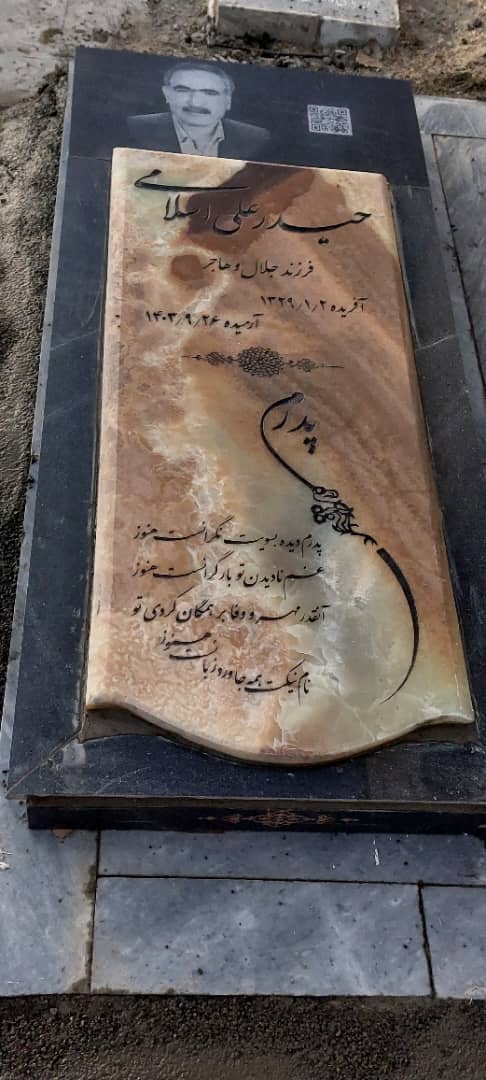 حیدر علی اسلامی
فرزند جلال و هاجر
آفریده ۱۳۲۹/۱/۲
آرمیده ۱۴۰۳/۹/۲۶
پدرم
پدرم دیده بسویت نگرانست هنوز
غم نادیدن تو بار گرانست هنوز
آنقدر مهر و وفا بر همگان کردی تو
نام نیکت همه جا ورد زبانست هنوز